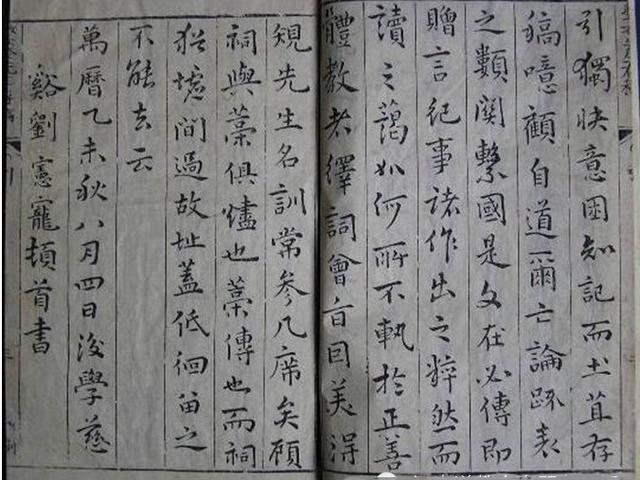 引獨快意困知記而土苴存
稿噫顧自道爾亡論疏表
之類關繫國是文在必傳即
贈言紀事諸作出之粹然而
讀之藹如何所不軌於正善
體教者繹詞會旨因美得
規先生名訓常參几席矣顧
祠與藁俱燼也藁傳也而祠
猶墟間過故址蓋低徊留之
不能去云
萬曆乙未秋八月四日後學慈
谿劉憲寵頓首書